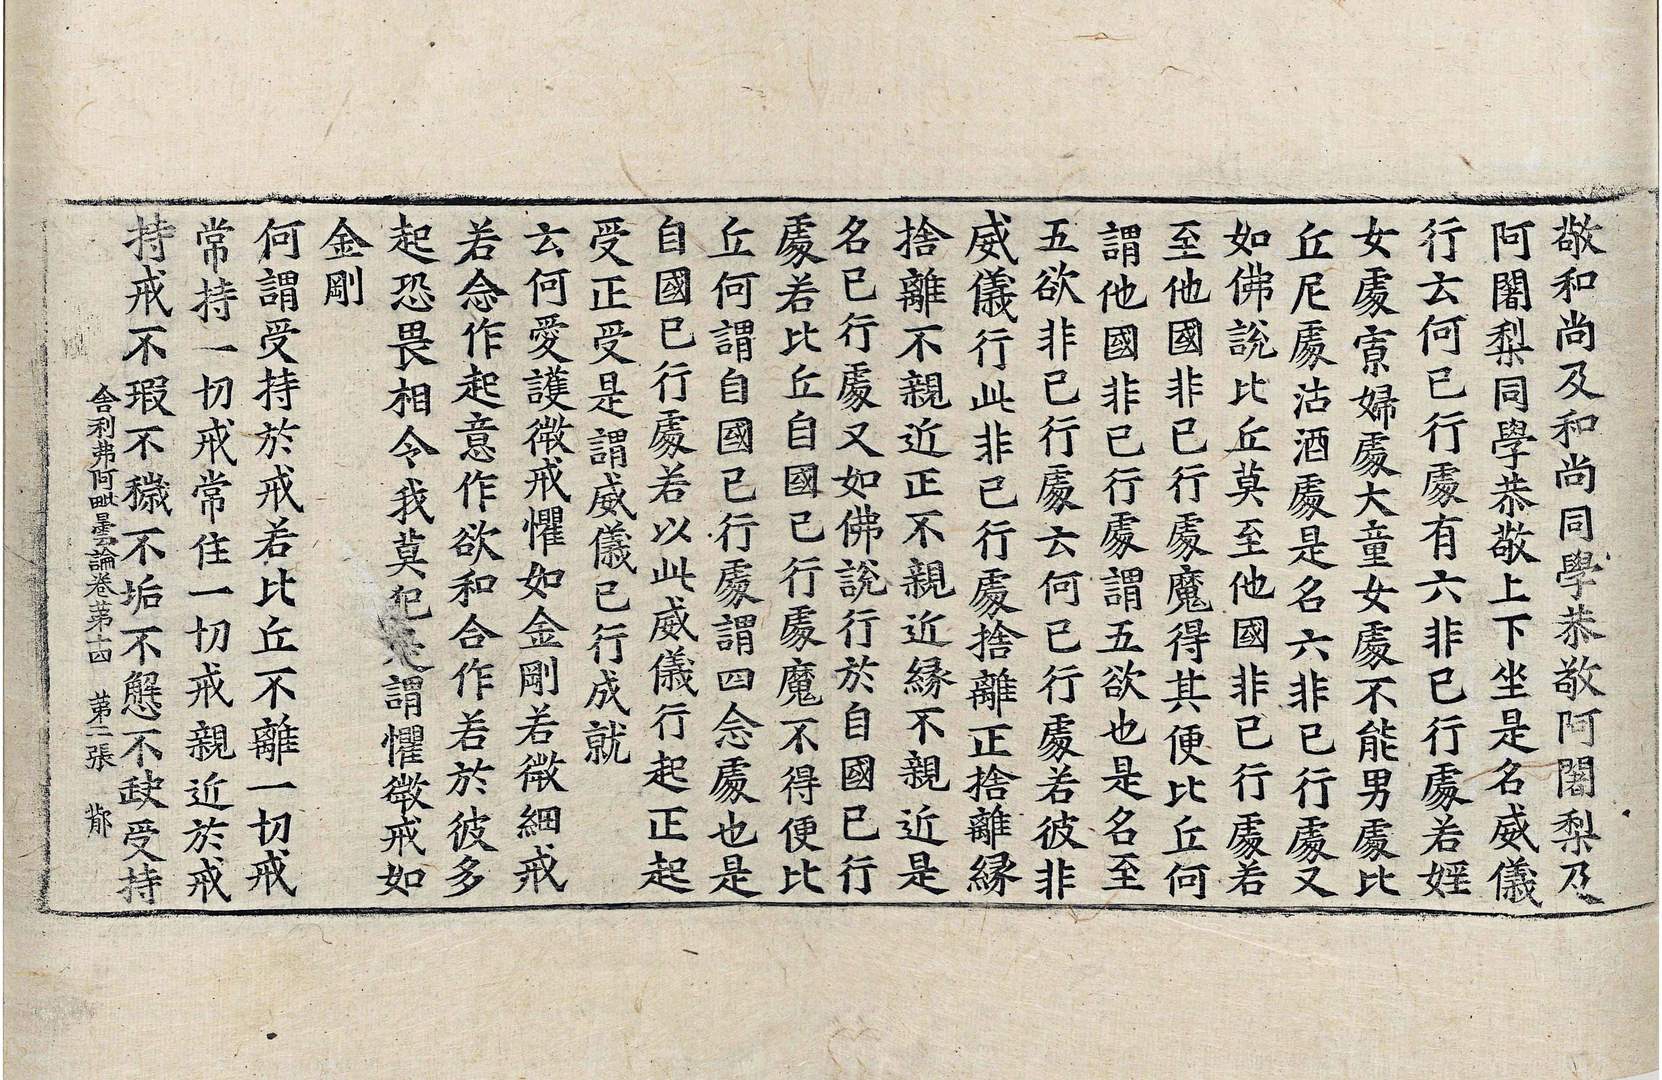 敬和尚及和尚同學恭敬阿闍梨及
阿闍梨同學恭敬上下坐是名威儀
行云何已行處有六非已行處若婬
女處寡婦處大童女處不能男處比
丘尼處沽酒處是名六非已行處又
如佛說比丘莫至他國非已行處若
至他國非已行處魔得其便比丘何
謂他國非已行處謂五欲也是名至
五欲非已行處云何已行處若彼非
威儀行此非已行處捨離正捨離緣
捨離不親近正不親近緣不親近是
名已行處又如佛說行於自國已行
處若比丘自國已行處魔不得便比
丘何謂自國已行處謂四念處也是
自國已行處若以此威儀行起正起
受正受是謂威儀已行成就
云何愛護微戒懼如金剛若微細戒
若念作起意作欲和合作若於彼多
起恐畏相令我莫犯是謂懼微戒如
金剛
何謂受持於戒若比丘不離一切戒
常持一切戒常住一切戒親近於戒
持戒不瑕不穢不垢不懈不缺受持
舍利弗阿毗曇論卷第十四 第二張